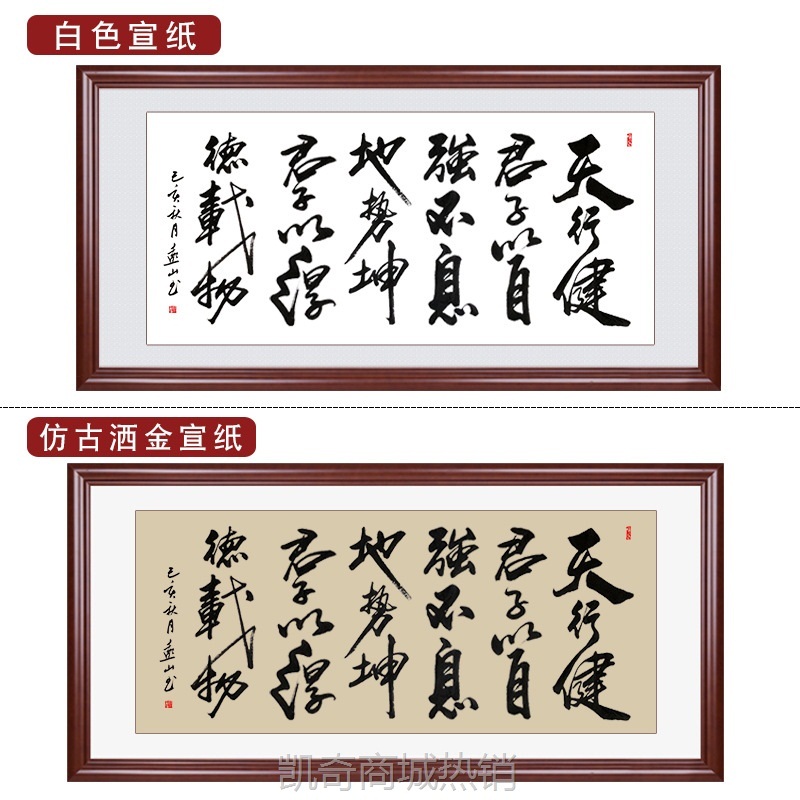 白色宣纸
天行健
君子以自
强不息
地势坤
君子以厚
德载物
己亥秋月
仿古洒金宣纸
天行健
君子以自
强不息
地势坤
君子以厚
德载物
己亥秋月
凯奇商城热销